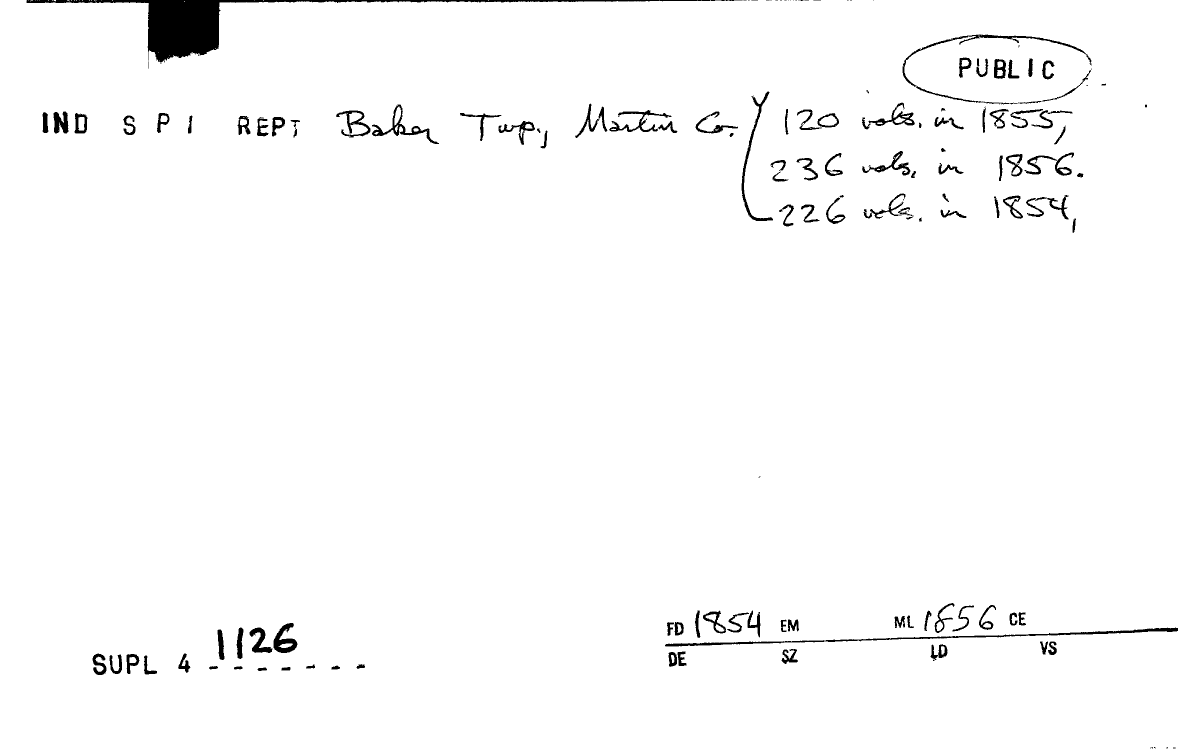 PUBLIC
IND S P I REPT Baker Twp., Martin Co. 120 vols. in 1855,
236 vols. in 1856.
226 vols. in 1854,
FD 1854 EM ML 1856 CE
SUPL 4 1126
DE SZ LD VS